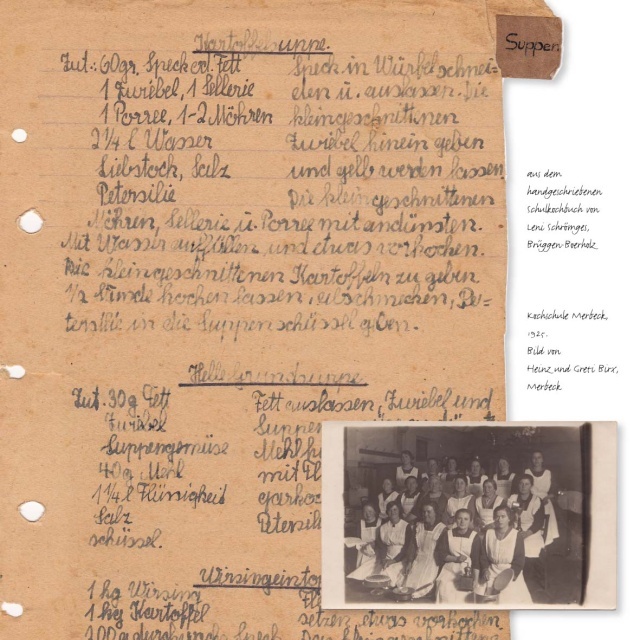 Suppen
Kartoffelsuppe.
Zut.: 60gr. Speck od. Fett
1 Zwiebel, 1 Sellerie
1 Porree, 1-2 Möhren
2¼ l Wasser
Liebstock, Salz
Petersilie
Speck in Würfel schnei=
den u. auslassen. Die
kleingeschnittenen
Zwiebel hinein geben
und gelb werden lassen
Die kleingeschnittenen
Möhren, Sellerie u. Porree mit andünsten.
Mit Wasser auffüllen, und etwas vorkochen.
Die kleingeschnittenen Kartoffeln zu geben
½ Stunde kochen lassen, abschmecken, Pe=
tersilie in die Suppenschüssel geben.
Helle Grundsuppe
Zut. 30g Fett
Zwiebel
Suppengemüse
40g Mehl
1¼ l Flüssigkeit
Salz
schüssel.
Fett auslassen, Zwiebel und
Suppen
Mehl
mit Fl
garkoc
Petersil
Wirsingeinto
1 kg Wirsing
1 kg Kartoffel
100g durchwachs. Speck
setzen, etwas vorkochen,
aus dem
handgeschriebenen
Schulkochbuch von
Leni Schrömges,
Brüggen-Boerholz
Kochschule Merbeck,
1925.
Bild von
Heinz und Greti Birx,
Merbeck